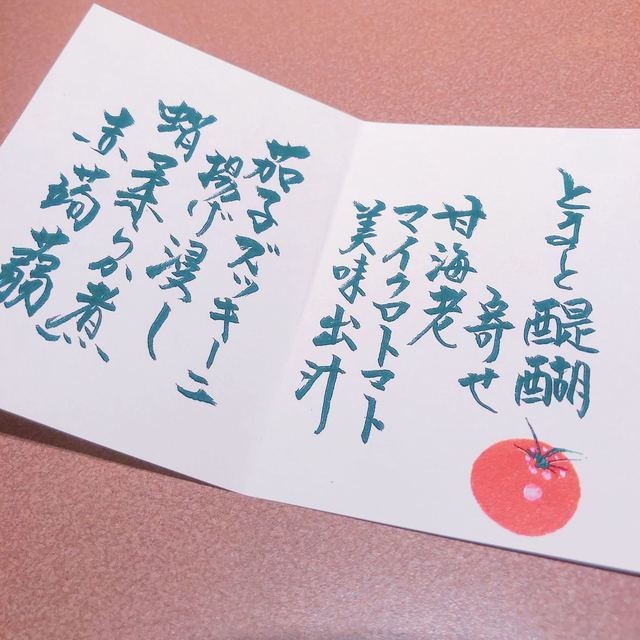 とまと醍醐
寄せ
甘海老
マイクロトマト
美味出汁
茄子ズッキーニ
揚げ浸し
蛸柔らか煮
赤蒟蒻